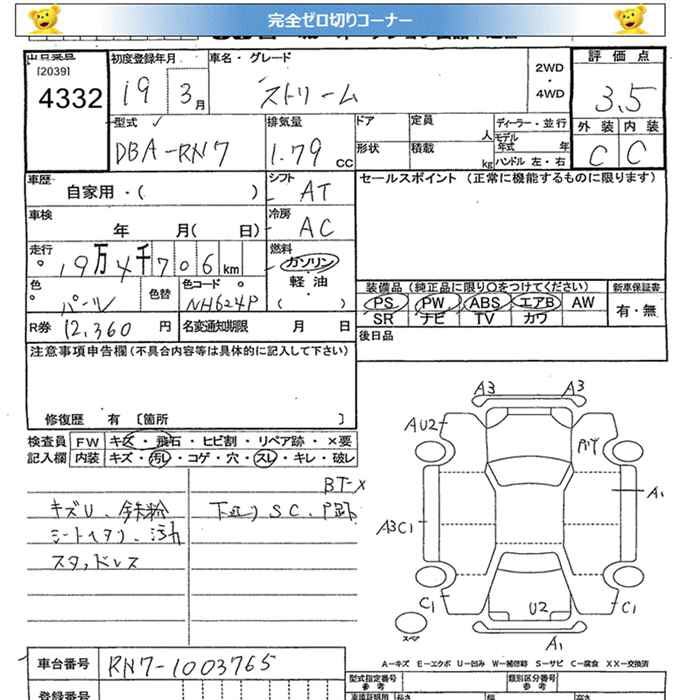 完全ゼロ切りコーナー
出品番号
[2039]
4332
初度登録年月
19 3月
車名・グレード
ストリーム
2WD
・
4WD
評価点
3.5
型式
DBA-RN7
排気量
1.79 CC
ドア
定員 人
ディーラー・並行
モデル年式 年
形状
積載 kg
ハンドル 左・右
外装 内装
C C
車歴
自家用・( )
シフト
AT
セールスポイント (正常に機能するものに限ります)
車検
年 月( 日)
冷房
AC
走行
19万4千706km
燃料
ガソリン
軽油
( )
色
パール
色替
色コード
NH624P
装備品 (純正品に限り○をつけてください)
PS PW ABS エアB AW
SR ナビ TV カワ
新車保証書
有・無
R券 12,360 円
名変通知期限 月 日
後日品
注意事項申告欄(不具合内容等は具体的に記入して下さい)
修復歴 有 〔箇所 〕
検査員 FW キズ・飛石・ヒビ割・リペア跡・×要
記入欄 内装 キズ・汚レ・コゲ・穴・スレ・キレ・破レ
BT-X
キズU、鉄粉
シートヘタリ、汚れ
スタッドレス
下廻りSC、凹跡
A3 A3
AU2
A1
A3C1
C1 C1
U2
スペア
A1
A-キズ E-エクボ U-凹み W-補修跡 S-サビ C-腐食 XX-交換済
車台番号 RN7-1003765
型式指定番号
参考
類別区分番号
参考
登録番号
長さ
幅
高さ